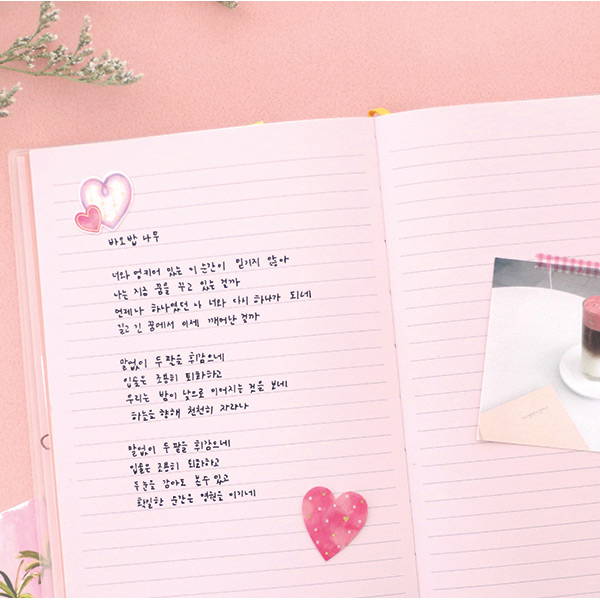 바오밥 나무
너와 엉키어 있는 이 순간이 믿기지 않아
나는 지금 꿈을 꾸고 있는 걸까
언제나 하나였던 나 너와 다시 하나가 되네
길고 긴 꿈에서 이제 깨어난 걸까
말없이 두 팔을 휘감으네
입술은 조용히 퇴화하고
우리는 밤이 낮으로 이어지는 것을 보네
하늘을 향해 천천히 자라나
말없이 두 팔을 휘감으네
입술은 조용히 퇴화하고
두 눈을 감아도 볼 수 있고
확실한 순간은 영원을 이기네